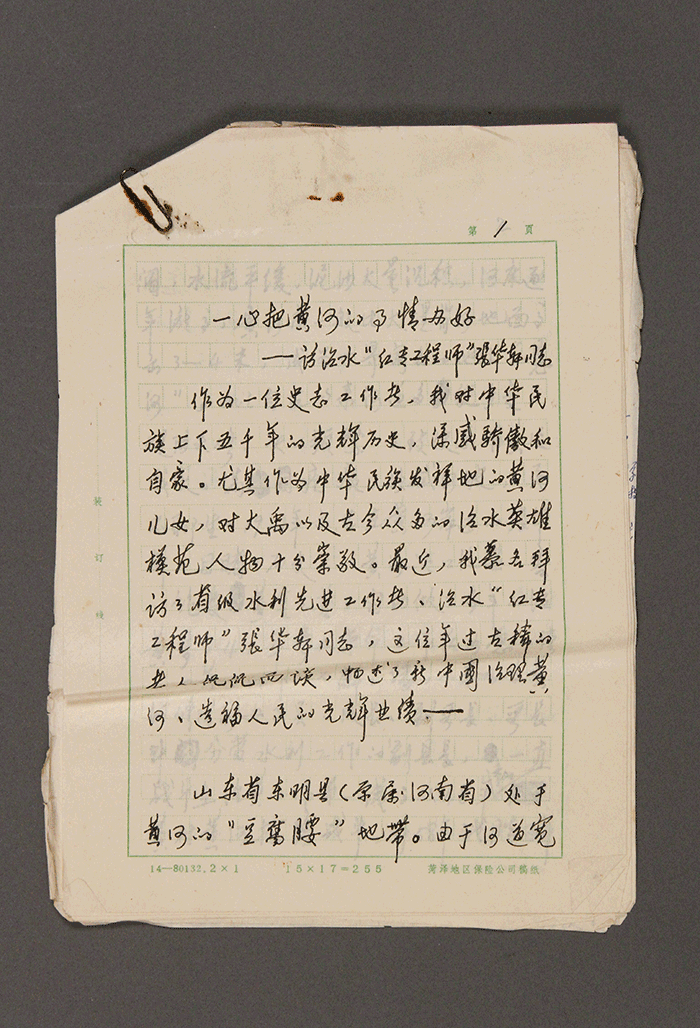 第 1 页
一心把黄河的事情办好
——访治水“红专工程师”張华軒同志
作为一位史志工作者，我对中华民
族上下五千年的光辉历史，深感骄傲和
自豪。尤其作为中华民族发祥地的黄河
儿女，对大禹以及古今众多的治水英雄
模范人物十分崇敬。最近，我慕名拜
访了省级水利先进工作者、治水“红专
工程师”張华軒同志，这位年过古稀的
老人侃侃而谈，畅述了新中國治理黄
河、造福人民的光辉业绩——
山东省东明县（原属河南省）处于
黄河的“豆腐腰”地带。由于河道宽
装
订
线
14—80132.2×1 15×17=255 菏泽地区保险公司稿纸